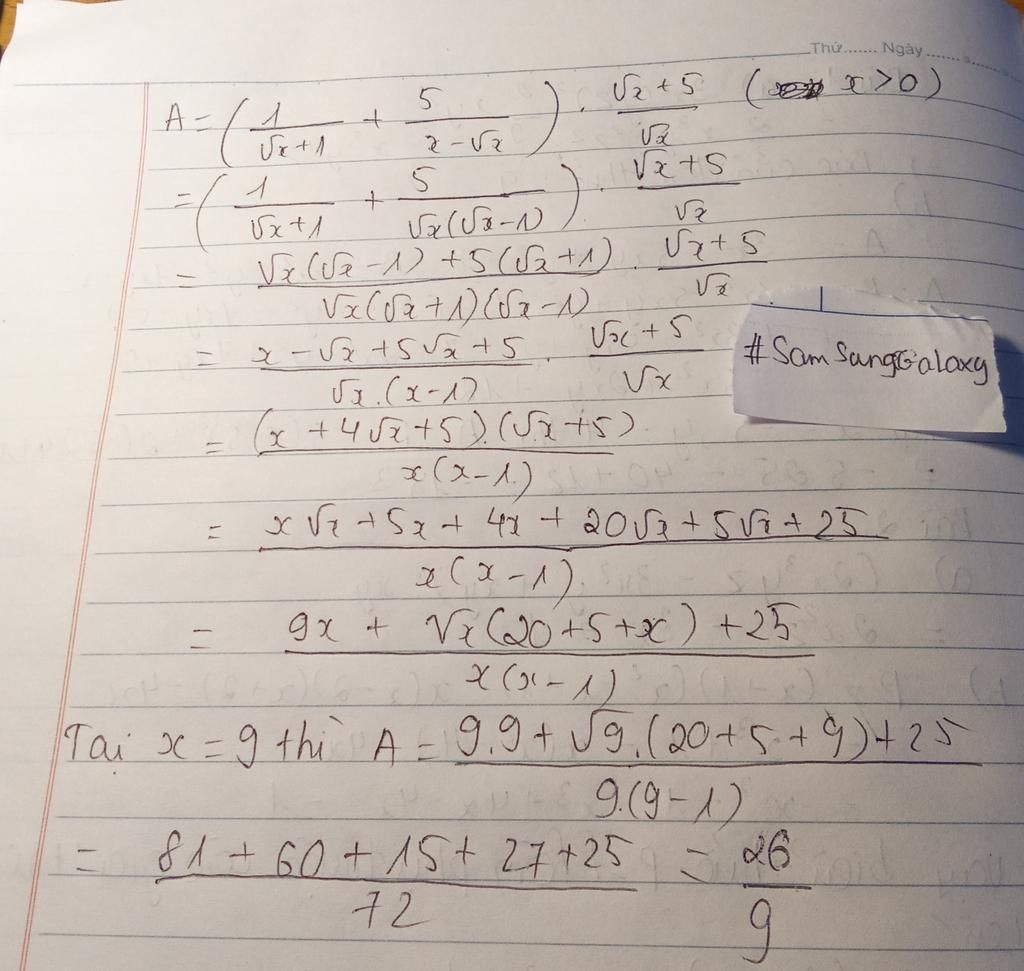 Thứ....... Ngày..............
A = (1/(√x + 1) + 5/(x - √x)) . (√x + 5)/√x (x > 0)
= (1/(√x + 1) + 5/(√x(√x - 1))) . (√x + 5)/√x
= (√x(√x - 1) + 5(√x + 1))/(√x(√x + 1)(√x - 1)) . (√x + 5)/√x
= (x - √x + 5√x + 5)/(√x.(x - 1)) . (√x + 5)/√x
#SamSungGalaxy
= ((x + 4√x + 5).(√x + 5))/(x(x - 1))
= (x√x + 5x + 4x + 20√x + 5√x + 25)/(x(x - 1))
= (9x + √x(20 + 5 + x) + 25)/(x(x - 1))
Tại x = 9 thì A = (9.9 + √9.(20 + 5 + 9) + 25)/(9.(9 - 1))
= (81 + 60 + 15 + 27 + 25)/72 = 26/9